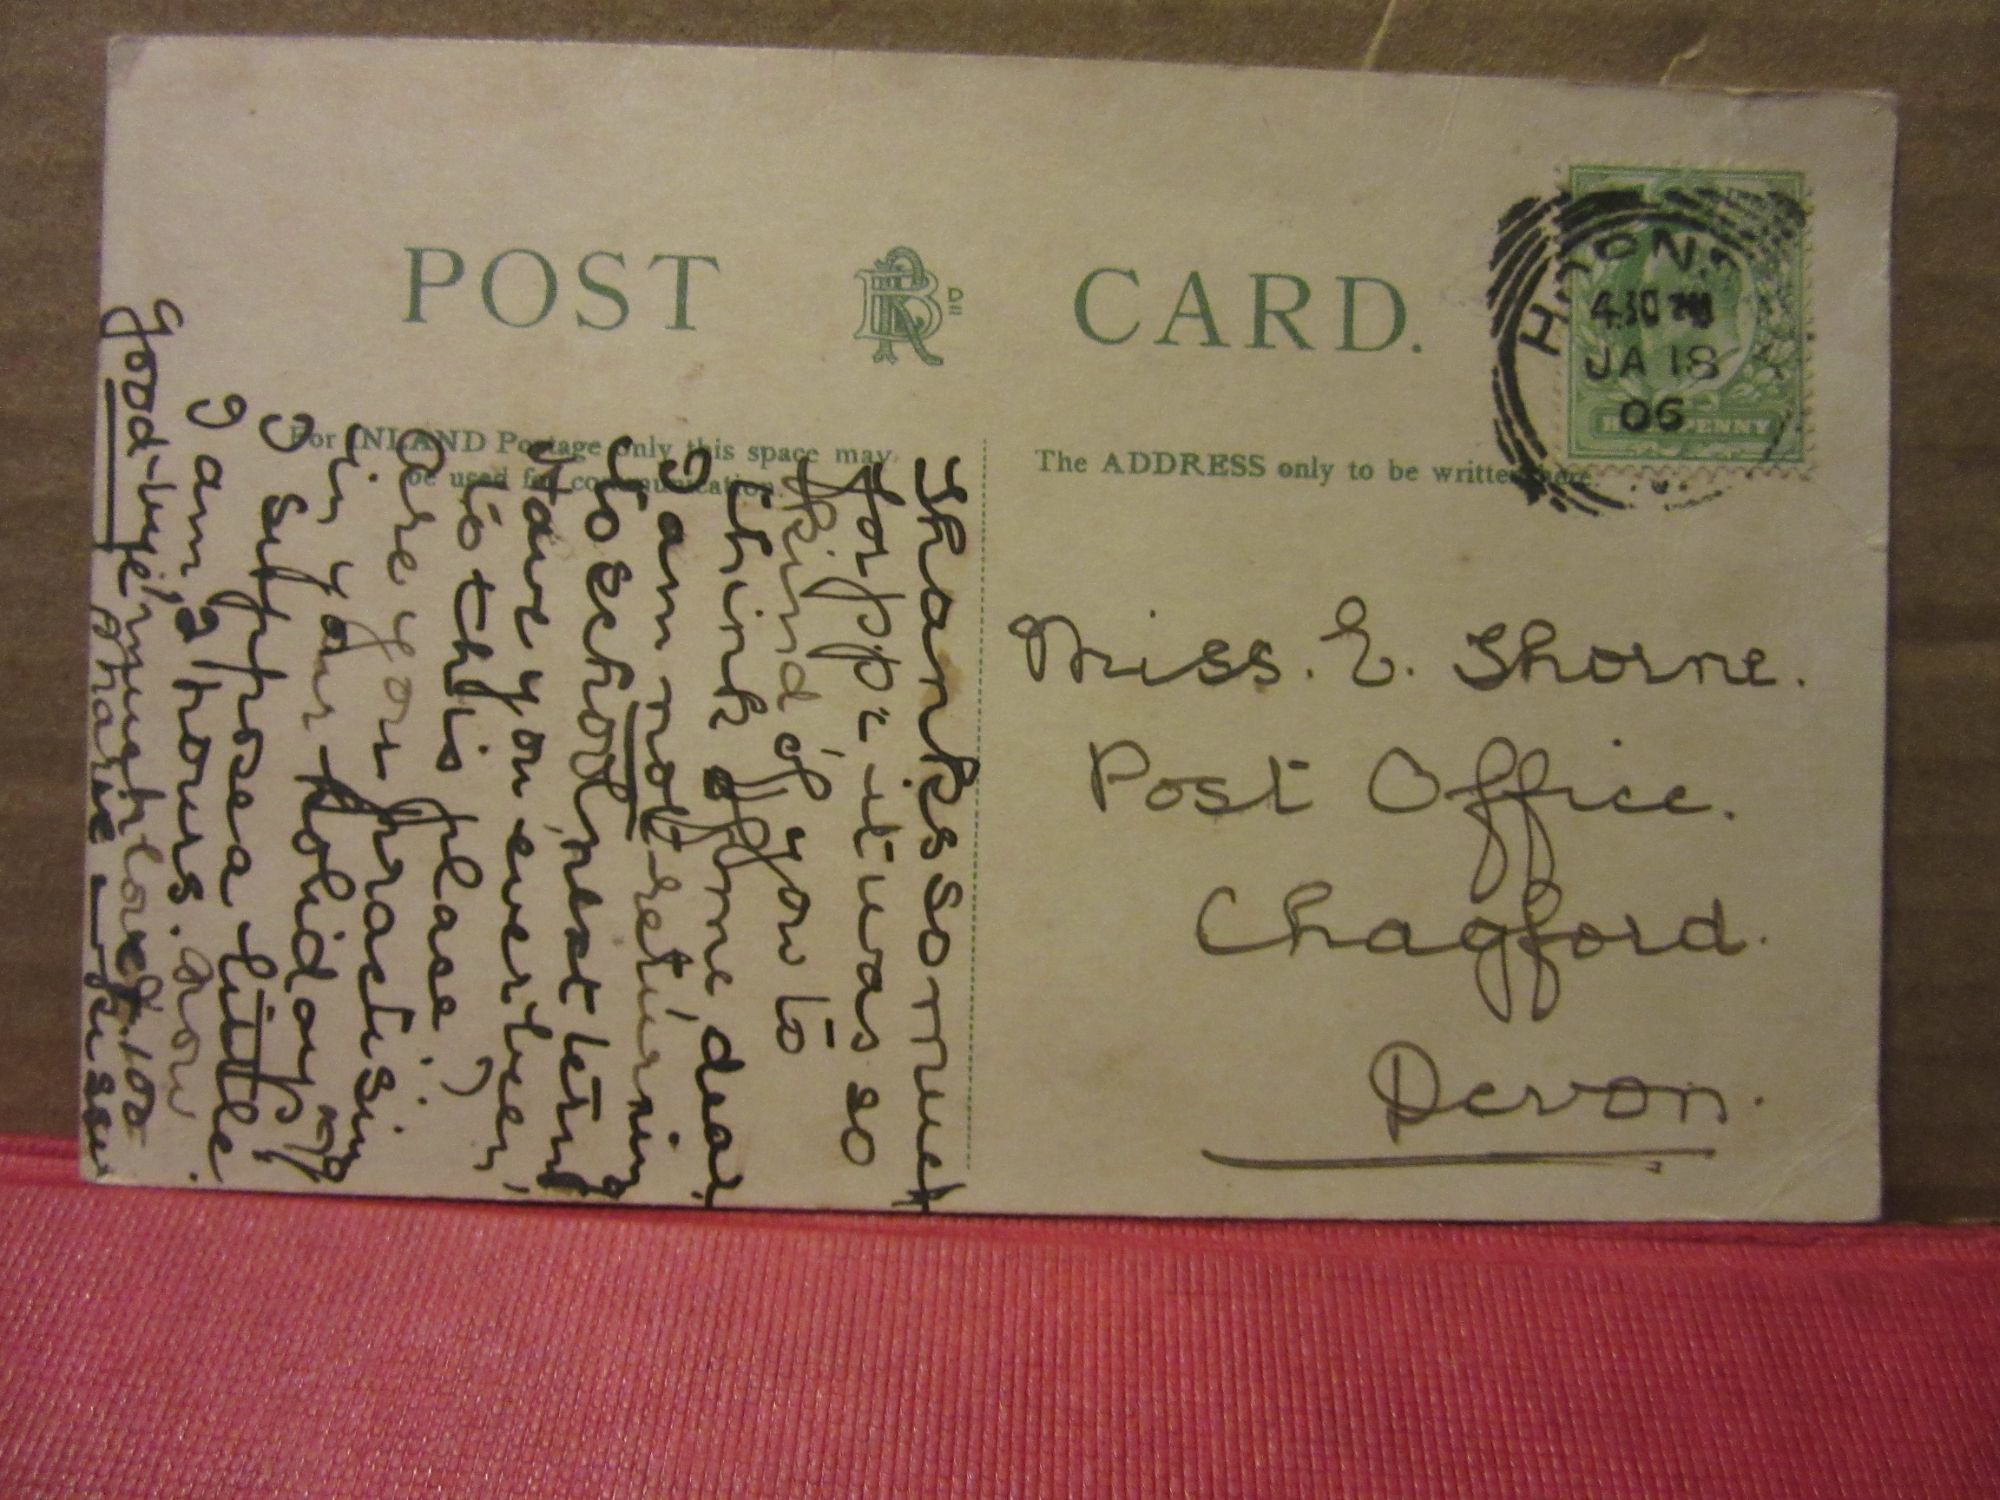 POST CARD.
For INLAND Postage only this space may
be used for communication.
The ADDRESS only to be written here.
4.30 PM
JA 18
06
HALFPENNY
Miss. E. Thorne.
Post Office.
Chagford.
Devon.
Thanks so much
for p.p.c it was so
kind of you to
think of me, dear
I am not returning
to school, next term
Have you ever been,
to this place?
Are you practising
in your holidays?
I suppose a little
I am, 2 hours.
Good-bye, much love &